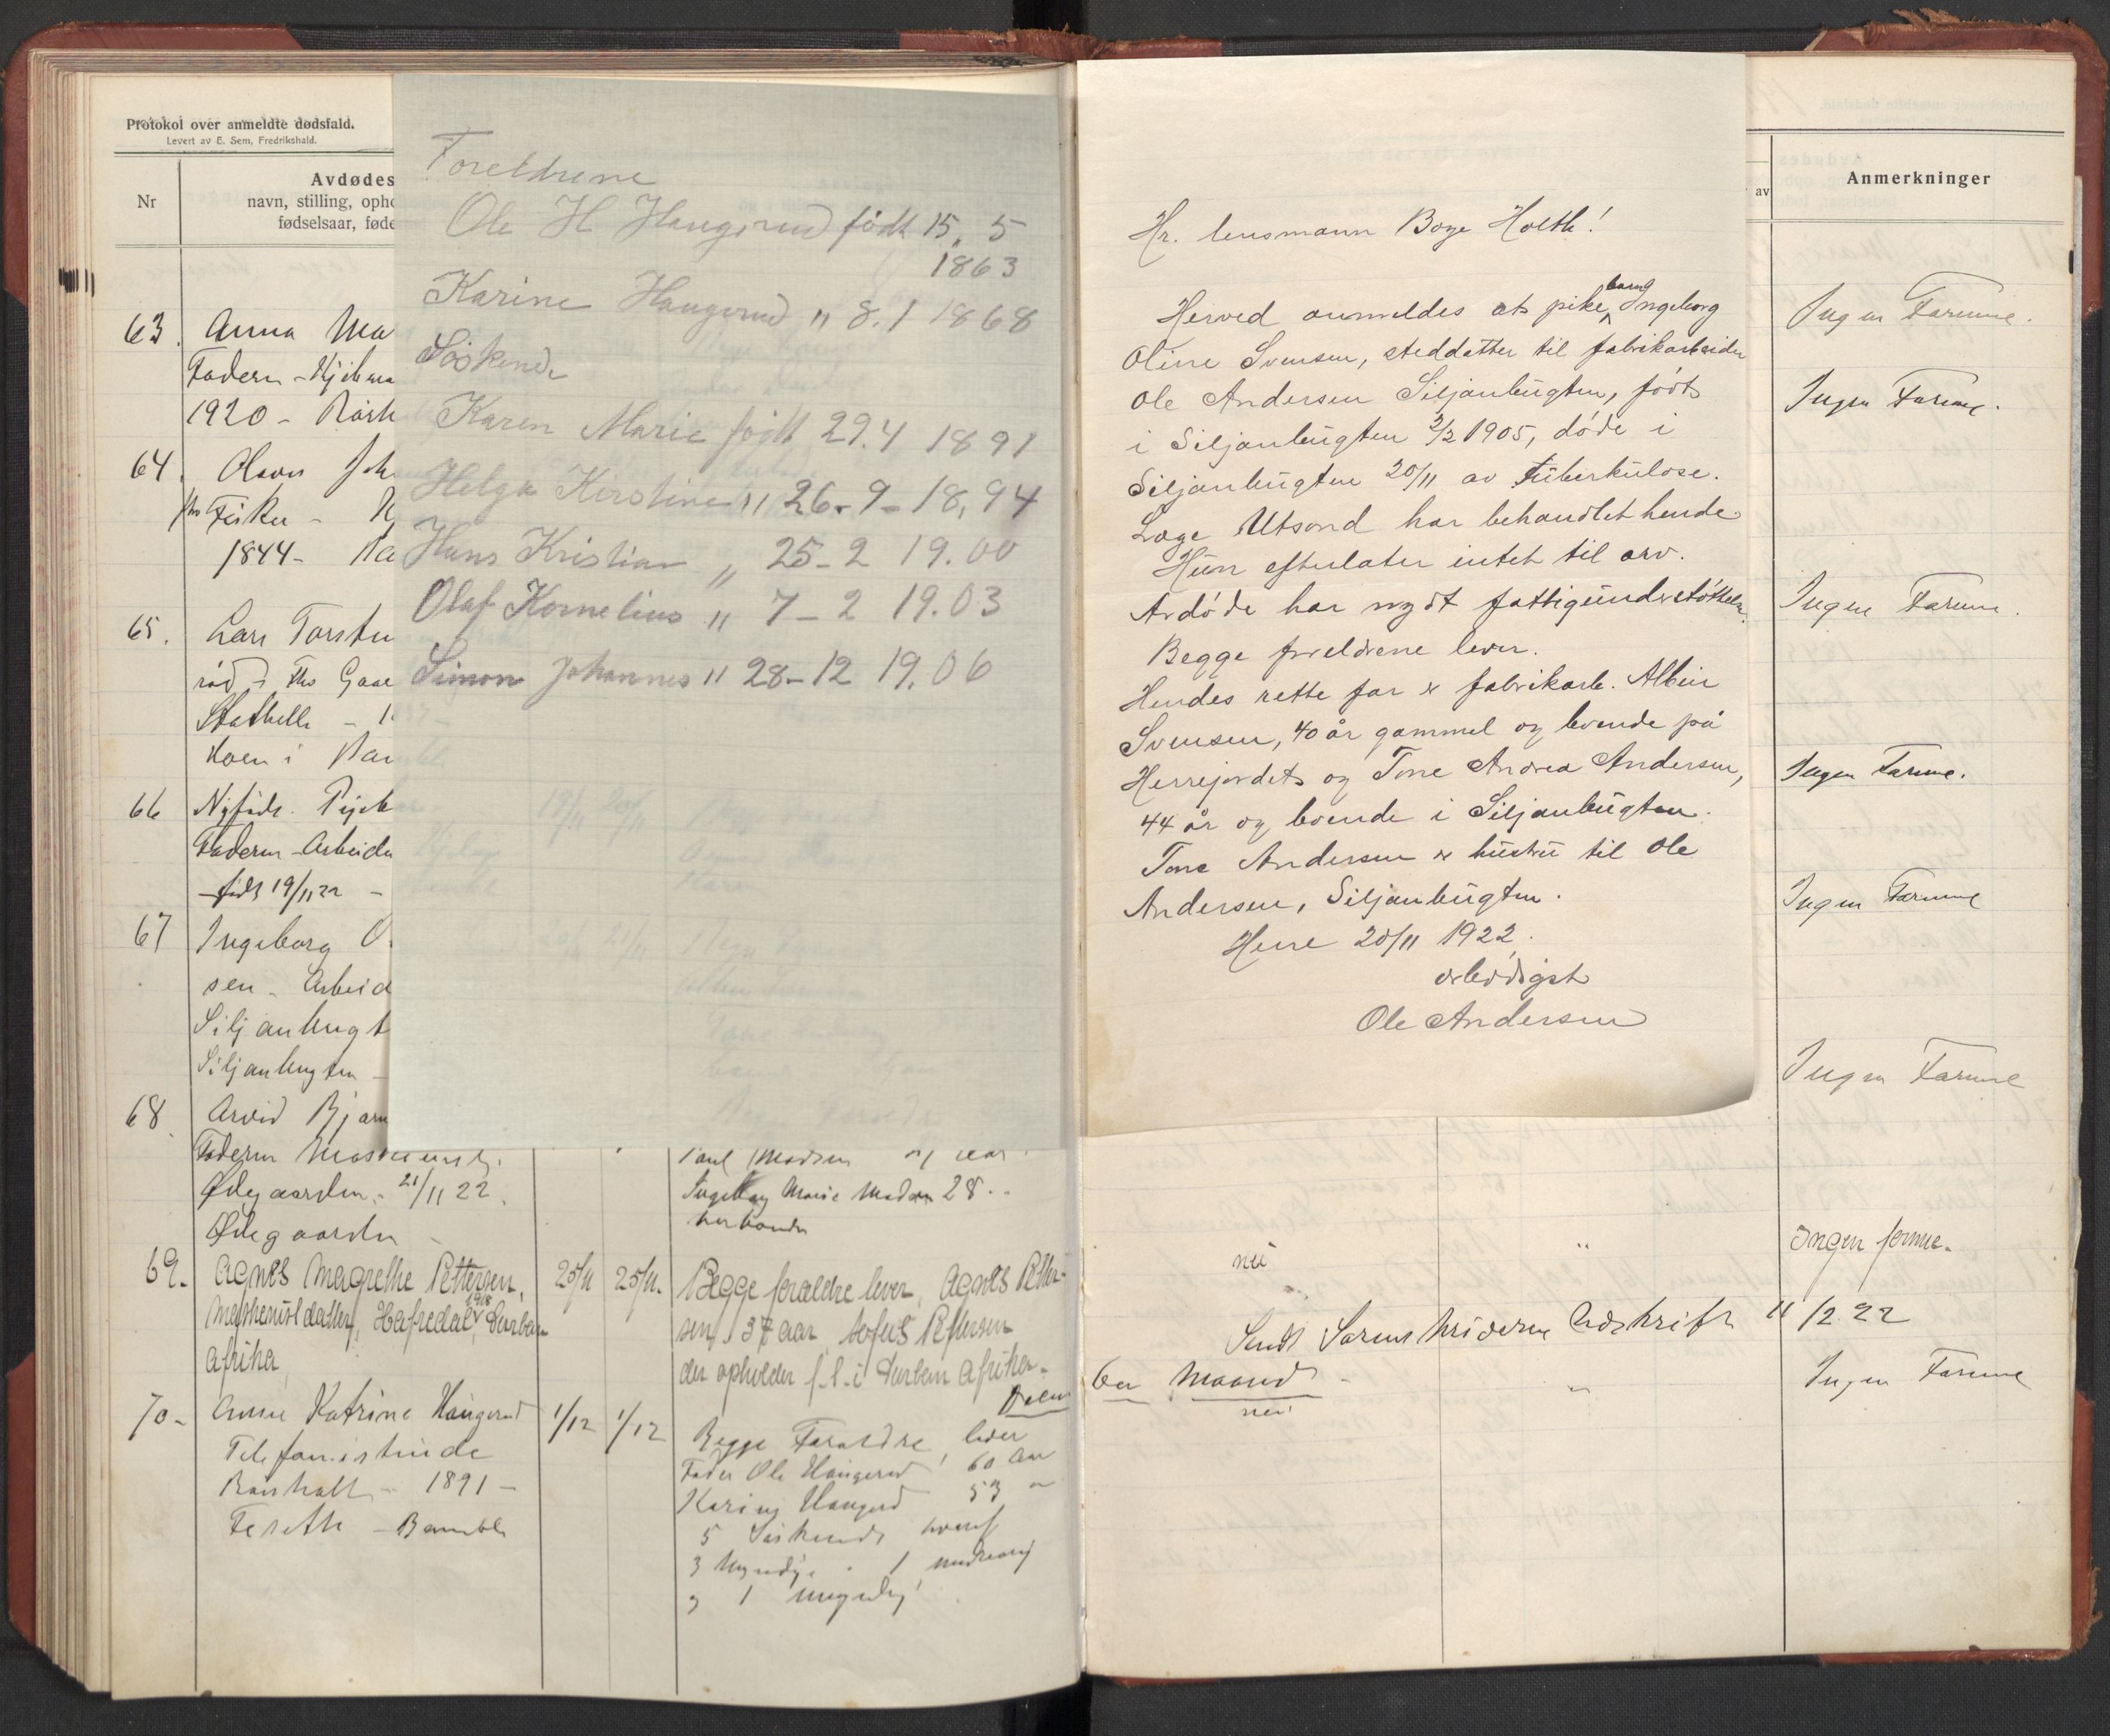 Protokol over anmeldte dødsfald.
Levert av E. Sem, Fredrikshald.
Nr
Avdødes
navn, stilling, opho
fødselsaar, føde
63. Anna Ma
Faderen -
1920 -
64.
Fisker -
1844 -
65. Lars Torste
rød
Stathelle -
i
66 Nyfødt.
Faderen - Arbeide
født 19/11 22 -
67 Ingeborg O
sen - Arbeid
Siljanbugt
Siljanbugten -
68. Arvid Bjarn
Faderen
Ødegaarden - 21/11 22.
Ødegaarden
Madsen
Ingeborg Marie Madsen 28
69. Agnes Magrethe Pettersen, 25/11 25/11. Begge forældre lever, Agnes Petter-
1918
datter, Durban
sen 37 aar, Sofus Pettersen
Afrika
der opholder f.t. i Durban Afrika.
70 - Anne Katrine Haugerud 1/12 1/12 Begge Forældre lever
Telefonistinde
Fader Ole Haugerud 60 Aar
1891 -
Karine Haugerud 53 "
- Bamble
5 Søskende hvoraf
3 Myndige 1
1
Foreldrene
Ole H Haugerud født 15. 5
1863
Karine Haugerud " 8.1 1868
Søskende
Karen Marie født 29.4 1891
Helga Kirstine " 26-9-18,94
Hans Kristian " 25-2 19.00
Olaf Kornelius " 7-2 19.03
Simon Johannes " 28-12 19.06
Hr. lensmann Boye Holth!
barn
Herved anmeldes at pike Ingeborg
Oline Svensen, steddatter til fabrikarbeider
Ole Andersen Siljanbugten, født
i Siljanbugten 3/2 1905, døde i
Siljanbugten 20/11 av tuberkulose.
Læge Utsond har behandlet hende
Hun efterlater intet til arv.
Avdøde har nydt fattigunderstøttelse.
Begge foreldrene lever.
Hendes rette far er fabrikarb. Albin
Svensen, 40 år gammel og boende på
Herrejordet og Tone Andrea Andersen,
44 år og boende i Siljanbugten.
Tone Andersen er hustru til Ole
Andersen, Siljanbugten.
Herre 20/11 1922.
ærbødigst
Ole Andersen
av
Anmerkninger
Ingen Formue.
Ingen Formue.
Ingen Formue.
Ingen Formue.
Ingen Formue
Ingen Formue
nei " Ingen formue.
Sendt Avskrift 11/12 22
nei " Ingen Formue